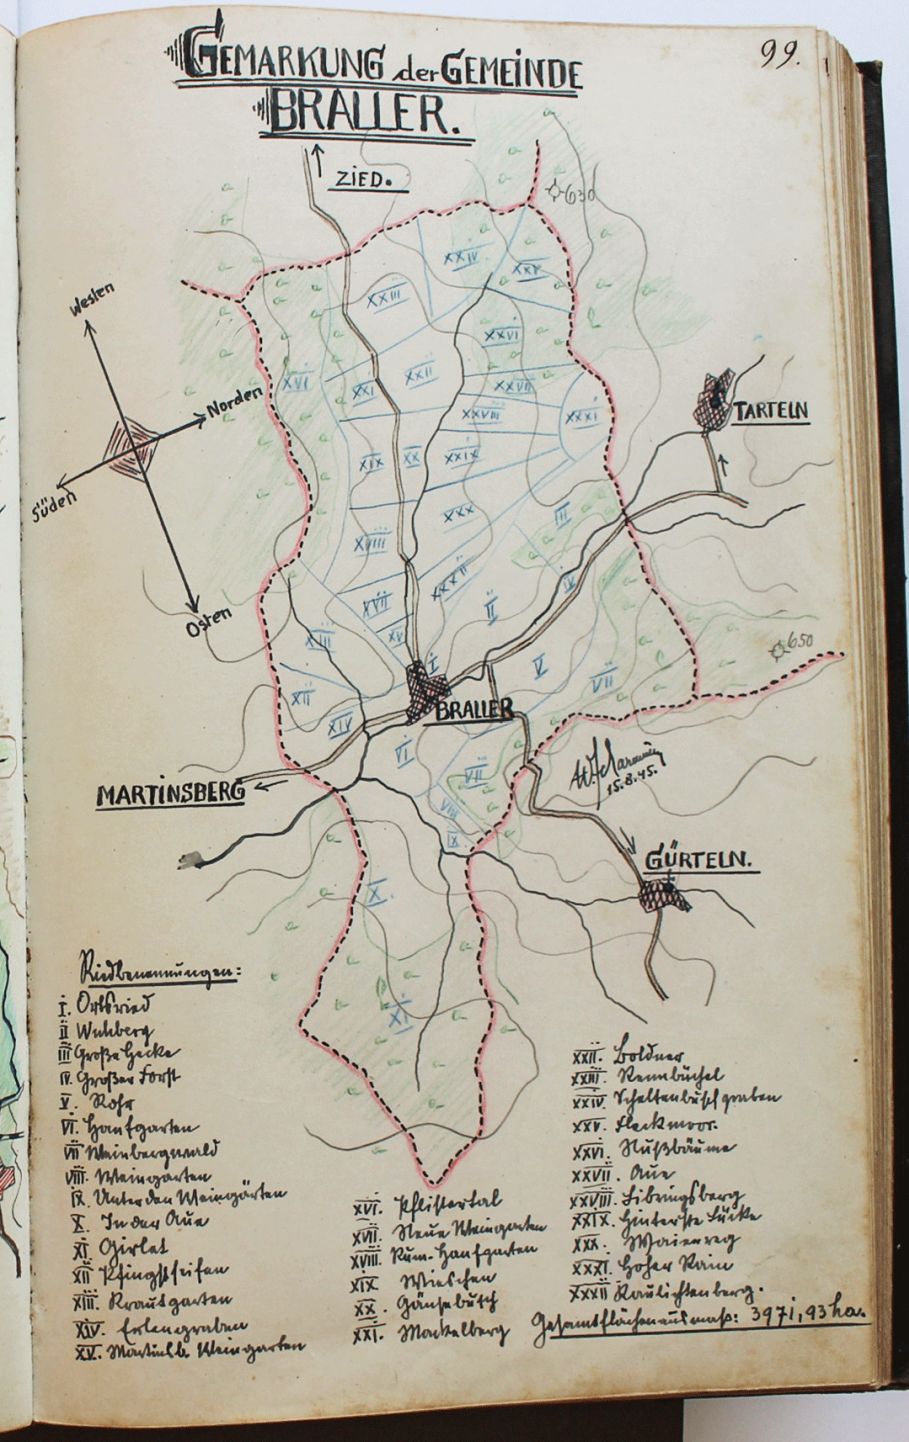 99.
GEMARKUNG der GEMEINDE
BRALLER.
ZIED.
630
Westen
Norden
Süden
Osten
XXIV
XXV
XXIII
XXVI
XVI
XXI
XXII
XXVII
XXVIII
XXXI
TARTELN
XIX
XX
XXIX
XXX
III
XVIII
XXXII
IV
XVII
II
XIII
XV
I
V
VII
650
XII
XIV
BRALLER
VI
VII
MARTINSBERG
15.8.45.
VIII
IX
GÜRTELN.
X
XI
Riedbenennungen:
I. Ortsried
II Wuhberg
III Große Hecke
IV. Großer Forst
V. Rohr
VI. Hanfgarten
VII Weinbergwald
VIII. Weingarten
IX. Unter den Weingärten
X. In der Aue
XI Girlet
XII Pfingstseifen
XIII. Krautgarten
XIV. Erlengraben
XV. Martinsb. Weingarten
XVI. Pfistertal
XVII. Neue Weingarten
XVIII. Rum. Hanfgarten
XIX Wieschen
XX. Gänsebusch
XXI. Mackelberg
XXII. Boldner
XXIII. Rennbüchel
XXIV. Scheltenbuschgraben
XXV. Fleckmoor.
XXVI. Nußbäume
XXVII. Aue
XXVIII. Libringsberg
XXIX. Hinterste Lücke
XXX. Waiereg
XXXI. Hoher Rain
XXXII Raulichtenberg.
Gesamtflächenausmaß: 3971,93 ha.